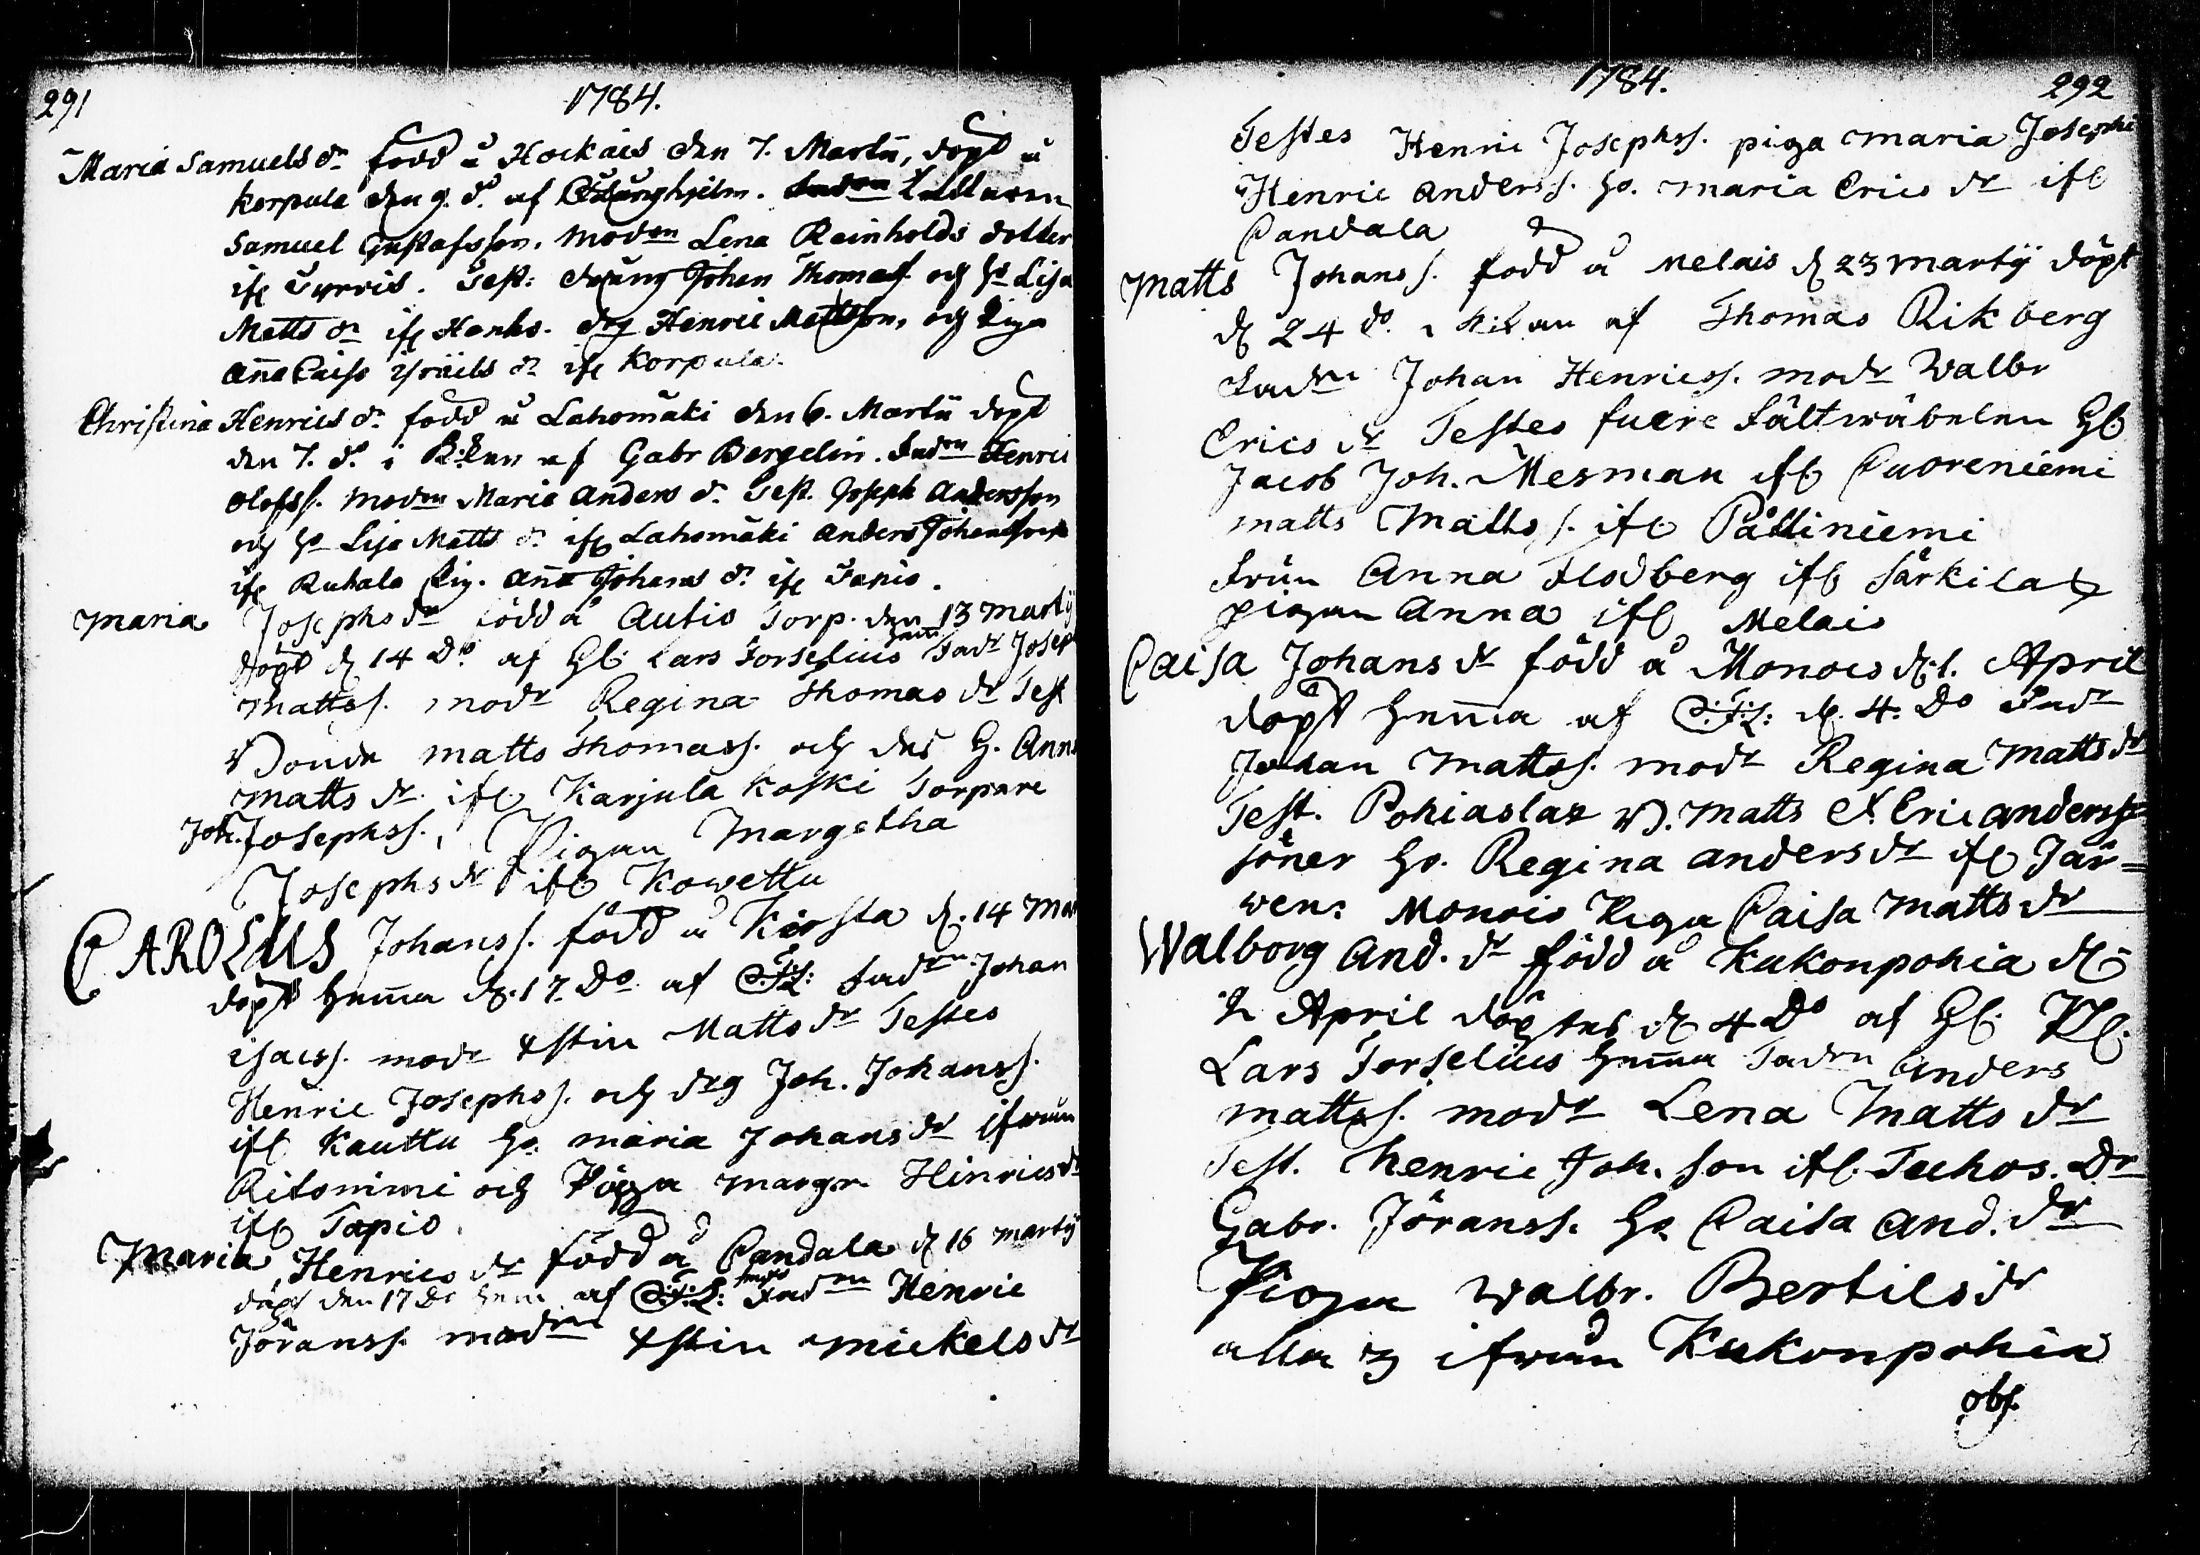 291
1784.
Maria Samuels dr född å Hockais den 7. Martii, döpt å
Korpula den 9. do af Ljunghjelm. Fadren
Samuel Gustafsson, Modren Lena Reinholds dotter
ifr Tyrris. Test: dräng Johan Thomass. och ho Lisa
Matts dr ifr Hanho. drg Henric Mattsson, och Piga
Aña Caisa israels dr ifr Korpula.
Christina Henrics dr född å Lahomäki den 6. Martii döpt
den 7. do i K:kan af Gabr Bergelin. Fadren Henric
Olofss. Modren Maria Anders dr Test. Joseph Andersson
och ho Lisa Matts dr ifr Lahomäki Anders Johansson
ifr Ruhala Pig. Aña Johans dr ifr Tapio.
Maria Josephs dr född å Autio Torp. den 13 Martij
döpt d. 14 Do af Hl. Lars Forselius hem Fadr Joseph
Mattss. modr Regina Thomas dr Test
Bonde Matts Thomass. och des H. Anna
Matts dr ifr Karjula Koski Torpare
Joh. Josephss. Pigan Margetha
Josephs dr ifr Kowettu
CAROLUS Johanss. född å Kirsta d. 14 Mar
döpt hem̄a d. 17. Do af C.F.L: Fadren Johan
isacss. modr Xstin Matts dr Testes
Henric Josephss. och drg Joh. Johanss.
ifr Kauttu ho. maria Johans dr ifrån
Ritonimi och Piga margr. Hinrics dr
ifr Tapio.
Maria Henrics dr född å Pandala d 16 martij
döpt den 17 Do hem af C.F.L: Fadren Henric
Jöranss. modren Xstin mickels dr
1784.
292
Testes Henric Josephss. piga maria Josephs
Henric anderss. ho. maria Erics dr ifr
Pandala
Matts Johanss. född å Melais d 23 martij döpt
d 24 do i K:kan af Thomas Rikberg
Fadrn Johan Henricss. modr Walbr
Erics dr Testes fuere Fältwäbelen Hl
Jacob Joh. Mesman ifr Puoreniemi
matts Mattss. ifr Pättiniemi
Frün Anna Flodberg ifr Särkila
pigan Anna ifr Melais
Caisa Johans dr född å Monois d. 1. April
döpt hem̄a af C.F.L: d. 4. Do Fadr
Johan Mattss. modr Regina Matts dr
Test. Pohiastaz B. Matts & Eric anders=
söner ho. Regina anders dr ifr Jär=
wenp Monois Piga Caisa Matts dr
Walborg And. dr född å Kukonpohia d
2 April döptes d 4 Do af Hl. Pl.
Lars Forselius hem̄a Fadrn Anders
mattss. modr Lena Matts dr
Test. Henric Joh. son ifr. Tuhos. Dr
Gabr. Jöranss. ho Caisa And. dr
Pigan Walbr. Bertils dr
alla 3 ifrån Kukonpohia
obs.